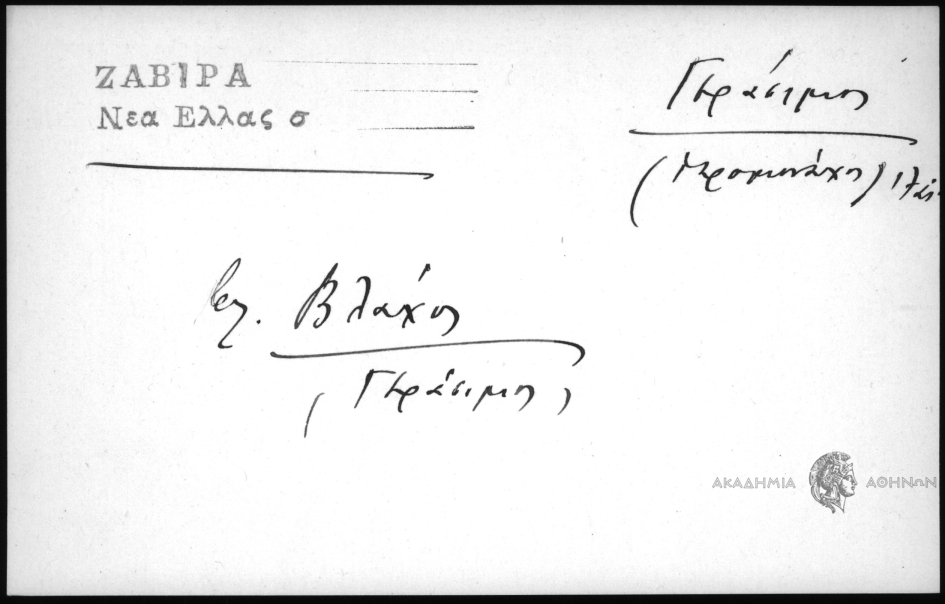 ΖΑΒΙΡΑ
Νεα Ελλας σ
Γεράσιμος
(Ιερομονάχος)
βλ. Βλάχος
(Γεράσιμος)
ΑΚΑΔΗΜΙΑ ΑΘΗΝΩΝ